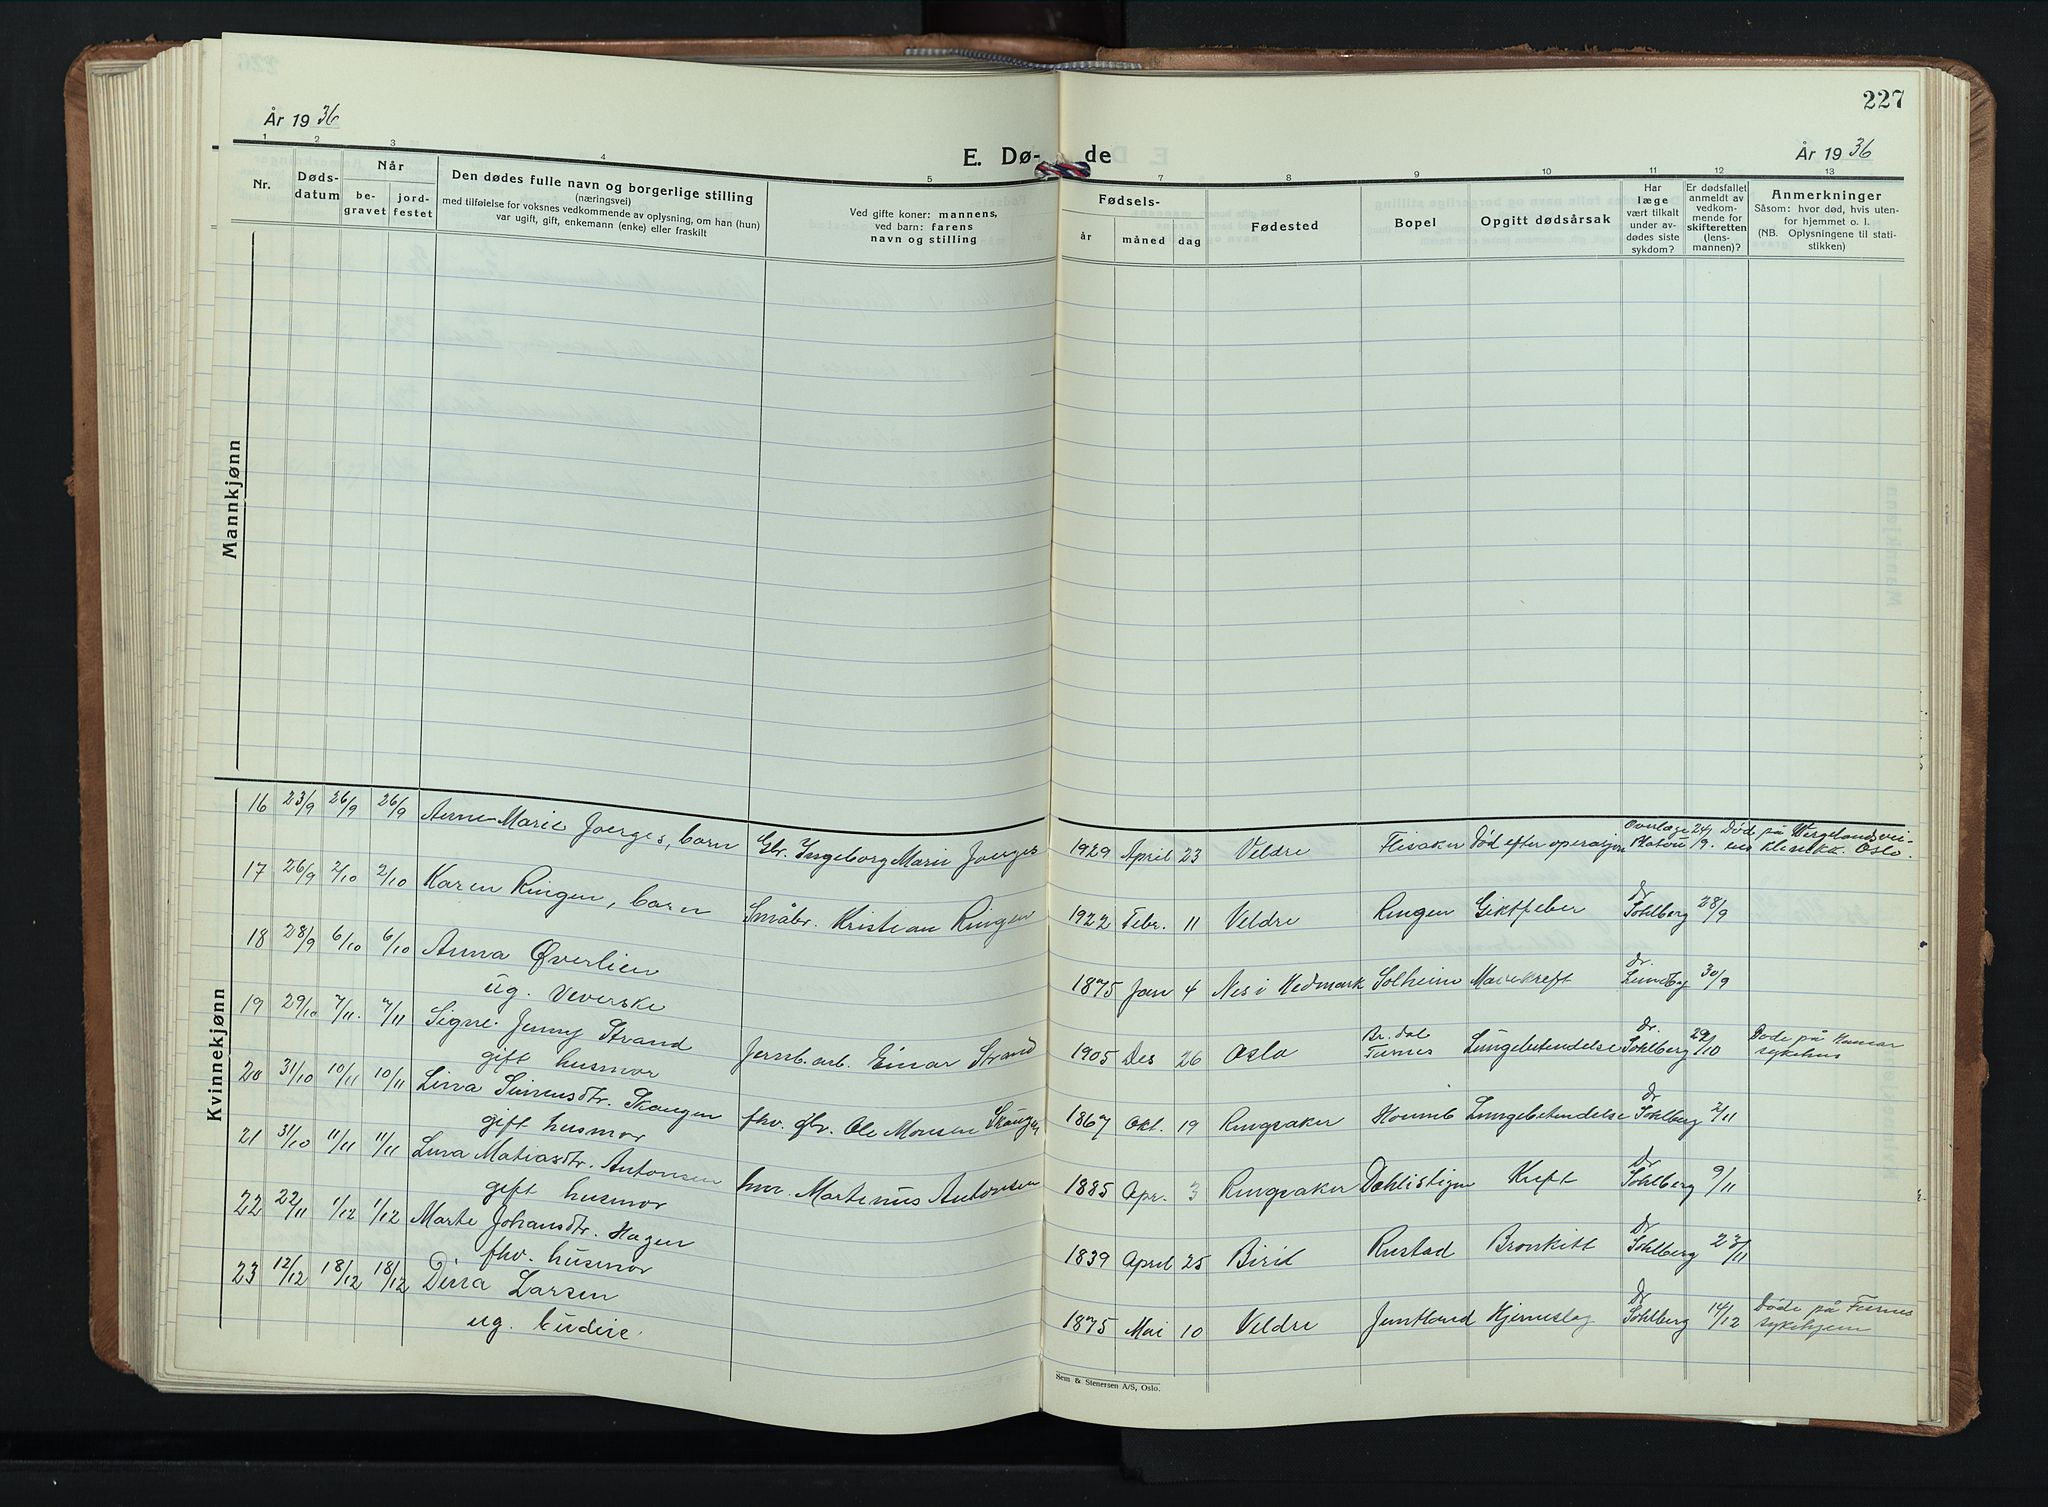 226
År 1936
227
År 1936
E. Dø- de
1 2 3 4 5 7 8 9 10 11 12 13
Nr.
Døds-
datum
Når
be-
gravet
jord-
festet
Den dødes fulle navn og borgerlige stilling
(næringsvei)
med tilføielse for voksnes vedkommende av oplysning, om han (hun)
var ugift, gift, enkemann (enke) eller fraskilt
Ved gifte koner: mannens,
ved barn: farens
navn og stilling
Fødsels-
år måned dag
Fødested
Bopel
Opgitt dødsårsak
Har
læge
vært tilkalt
under av-
dødes siste
sykdom?
Er dødsfallet
anmeldt av
vedkom-
mende for
skifteretten
(lens-
mannen)?
Anmerkninger
Såsom: hvor død, hvis uten-
for hjemmet o. l.
(NB. Oplysningene til stati-
stikken)
Mannkjønn
Kvinnekjønn
16 23/9 26/9 26/9 Anne-Marie Joerges, barn Gbr. Ingeborg Marie Joerges 1929 April 23 Veldre Flisaker Død efter operasjon Overlæge 24/9. Død på Wergelandsvei-
en klinikk. Oslo.
17 26/9 2/10 2/10 Karen Ringen, barn Småbr. Kristian Ringen 1922 Febr. 11 Veldre Ringen Giktfeber dr Sohlberg 28/9
18 28/9 6/10 6/10 Anna Øverlien 1875 Jan 4 Nes i Hedmark Solheim Mavekreft dr. Lundby 30/9
ug. Veverske
19 29/10 7/11. 7/11 Signe Jenny Strand Jernb. arb. Einar Strand 1905 Des 26 Oslo Br.dal Furnes Lungebetendelse Dr. Sohlberg 29/10 Døde på Hamar
sykehus
gift husmor
20 31/10 10/11 10/11 Lina Simensdtr. Skaugen fhv. gbr. Ole Monsen Skaugen 1867 Okt. 19 Ringsaker Lungebetendelse dr Sohlberg 2/11
gift husmor
21 31/10 11/11 11/11 Lina Matiasdtr. Antonsen Martinus Antonsen 1885 Apr. 3 Ringsaker Dæhlistigen Kreft Dr Sohlberg 9/11
gift husmor
22 22/11 1/12 1/12 Marte Johansdtr. Hagen 1839 April 25 Birid Rustad Bronkitt Dr Sohlberg 23/11
fhv. husmor
23 12/12 18/12 18/12 Dina Larsen 1875 Mai 10 Veldre Jemtland Hjerneslag Dr Sohlberg 14/12 Døde på Furnes
sykehjem
ug. budeie
Sem & Stenersen A/S, Oslo.